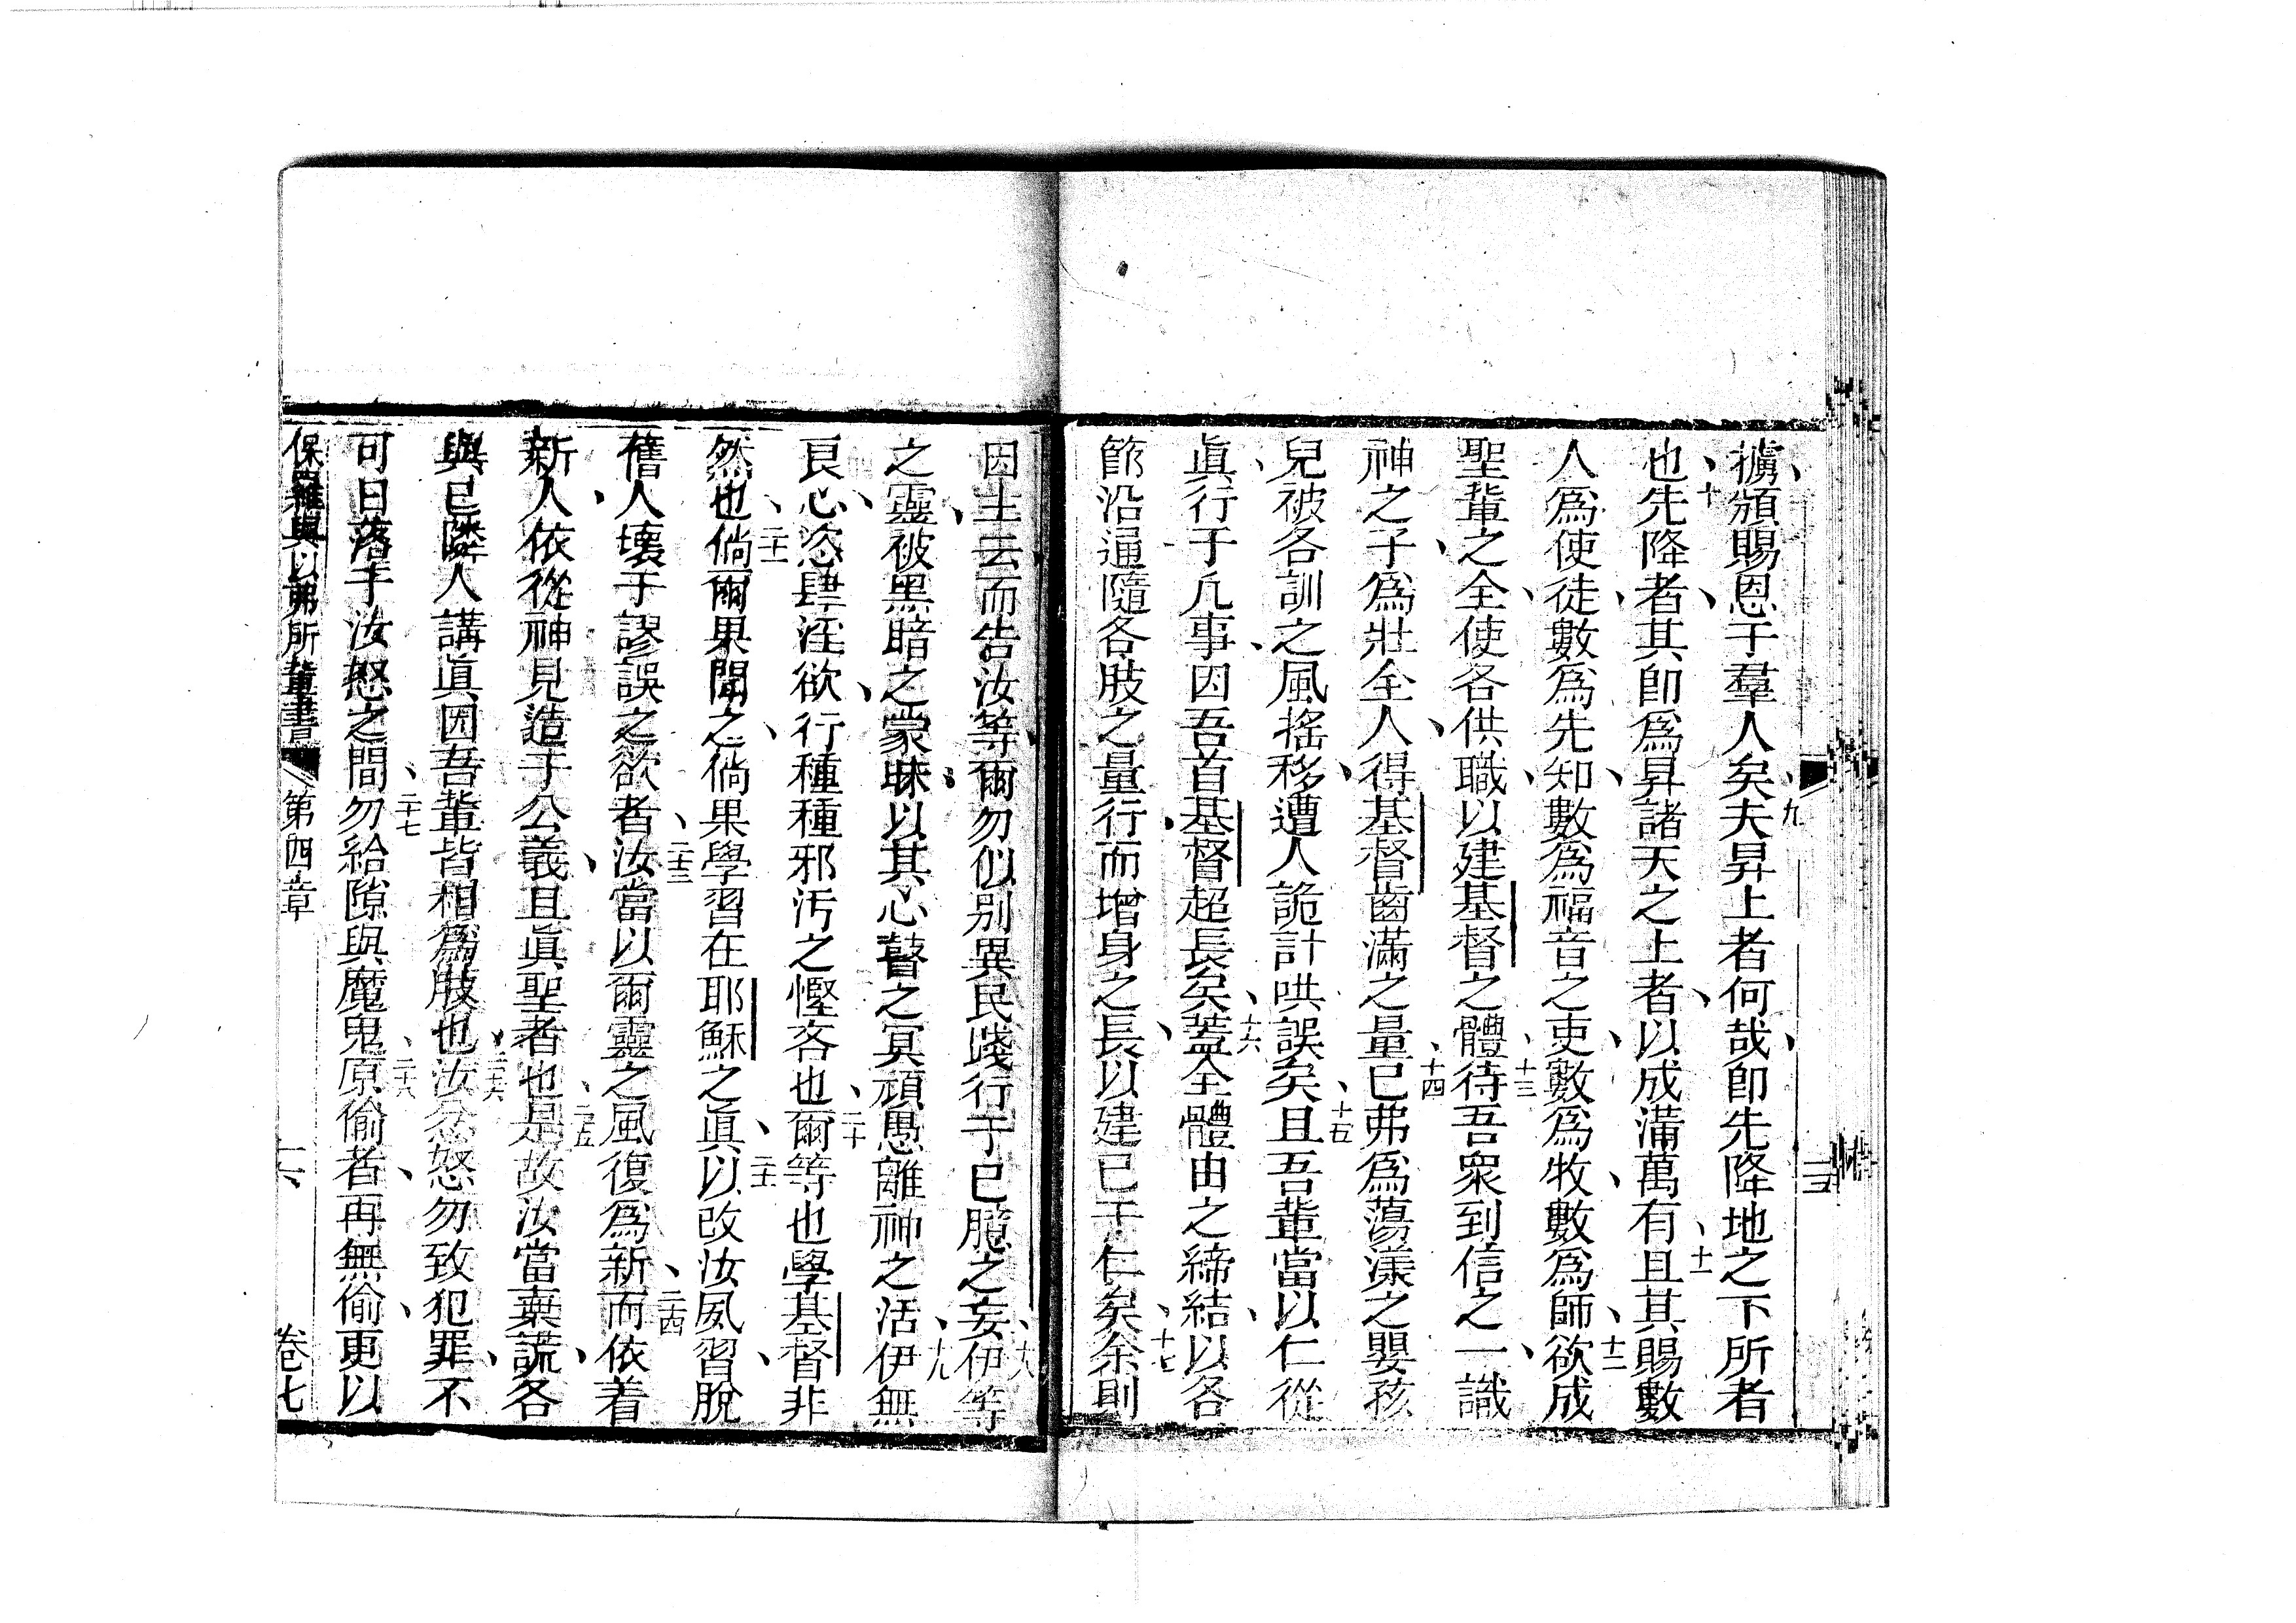 擄頒賜恩于羣人矣夫昇上者何哉卽先降地之下所者
也先降者其卽爲昇諸天之上者以成滿萬有且其賜數
人爲使徒數爲先知數爲福音之吏數爲牧數爲師欲成
聖輩之全使各供職以建基督之體待吾衆到信之一識
神之子爲壯全人得基督齒滿之量已弗爲蕩漾之嬰孩
兒被各訓之風搖移遭人詭計哄誤矣且吾輩當以仁從
眞行于凡事因吾首基督超長矣蓋全體由之締結以各
節沿逼隨各肢之量行而增身之長以建已于仁矣余則
因主云而告汝等爾勿似別異民踐行于已臆之妄伊等
之靈被黑暗之蒙昧以其心瞽之冥頑愚離神之活伊無
良心恣肆淫欲行種種邪汚之慳吝也爾等也學基督非
然也倘爾果聞之倘果學習在耶穌之眞以改汝夙習脫
舊人壞于謬誤之欲者汝當以爾靈之風復爲新而依着
新人依從神見造于公義且眞聖者也是故汝當棄謊各
與已隣人講眞因吾輩皆相爲肢也汝忿怒勿致犯罪不
可日落于汝怒之間勿給隙與魔鬼原偷者再無偷更以
保羅與以弗所輩書 第四章 卷七